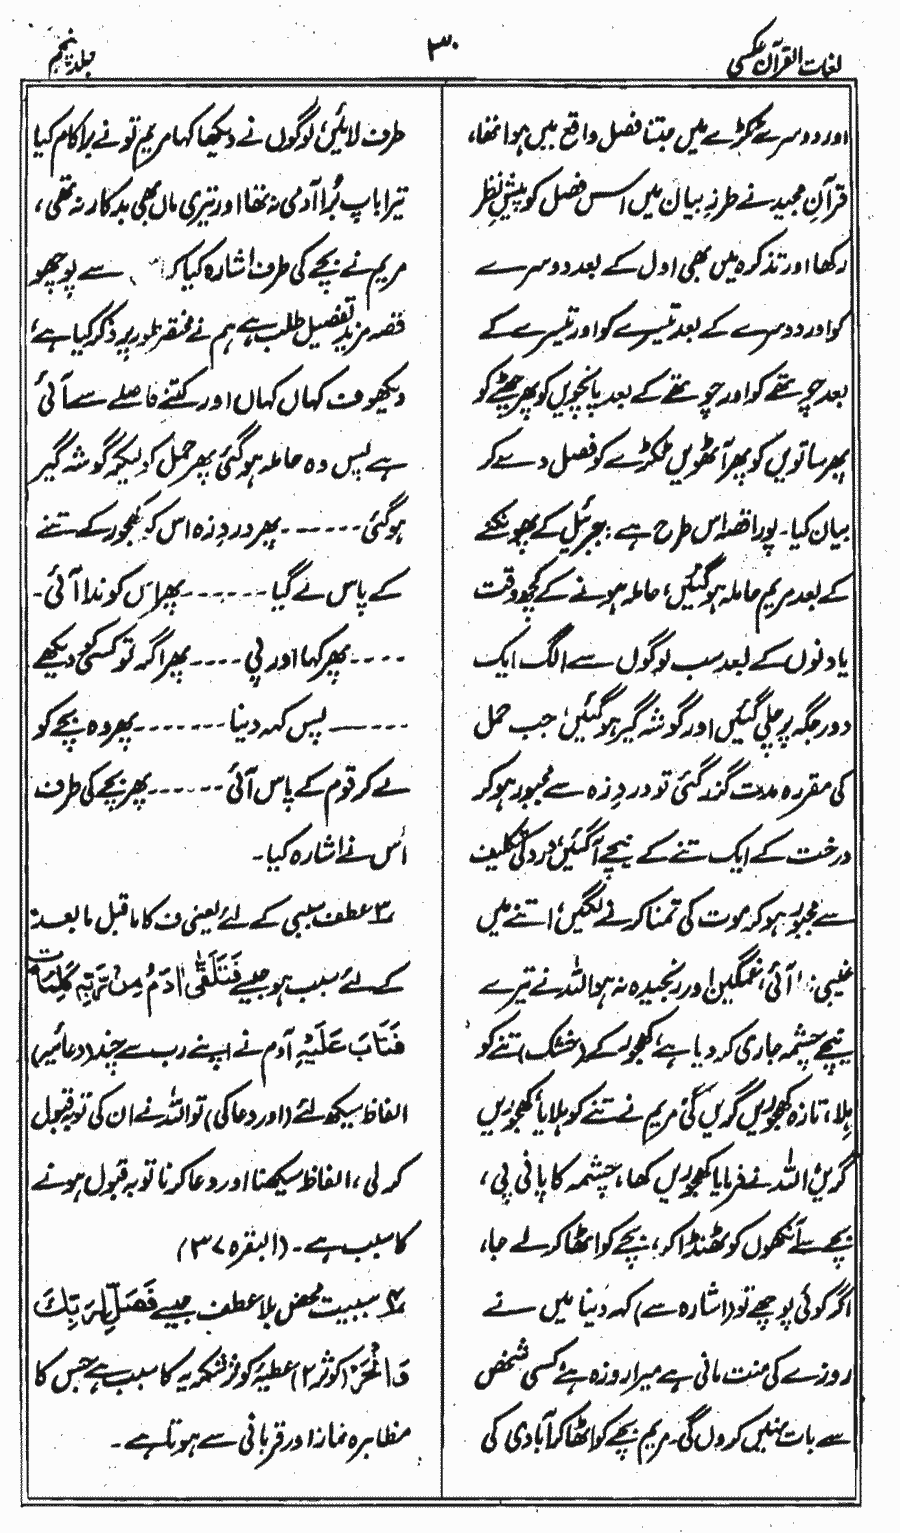 لغات القرآن عکسی
۳۰
جلد پنجم
اور دوسرے ٹکڑے میں جتنا فصل واقع میں ہوا تھا،
قرآن مجید نے طرزِ بیان میں اس فصل کو پیشِ نظر
رکھا اور تذکرہ میں بھی اول کے بعد دوسرے
کو اور دوسرے کے بعد تیسرے کو اور تیسرے کے
بعد چوتھے کو اور چوتھے کے بعد پانچویں کو پھر چھٹے کو
پھر ساتویں کو پھر آٹھویں ٹکڑے کو فصل دے کر
بیان کیا۔ پورا قصہ اس طرح ہے : جبرئیل کے پھونکنے
کے بعد مریم حاملہ ہو گئیں، حاملہ ہونے کے کچھ وقت
یا دنوں کے بعد سب لوگوں سے الگ ایک
دور جگہ پر چلی گئیں اور گوشہ گیر ہو گئیں، جب حمل
کی مقررہ مدت گذر گئی تو دردِ زہ سے مجبور ہو کر
درخت کے ایک تنے کے نیچے آ گئیں، درد کی تکلیف
سے مجبور ہو کر موت کی تمنا کرنے لگیں، اتنے میں
غیبی ندا آئی، غمگین اور رنجیدہ نہ ہو اللہ نے تیرے
نیچے چشمہ جاری کر دیا ہے، کھجور کے (خشک) تنے کو
ہلا، تازہ کھجوریں گریں گی، مریم نے تنے کو ہلایا، کھجوریں
گریں، اللہ نے فرمایا کھجوریں کھا، چشمہ کا پانی پی،
بچے سے آنکھوں کو ٹھنڈا کر، بچے کو اٹھا کر لے جا،
اگر کوئی پوچھے تو (اشارہ سے) کہہ دینا میں نے
روزے کی منت مانی ہے میرا روزہ ہے، کسی شخص
سے بات نہیں کروں گی۔ مریم بچے کو اٹھا کر آبادی کی
طرف لائیں، لوگوں نے دیکھا کہا مریم تو نے برا کام کیا
تیرا باپ بُرا آدمی نہ تھا اور تیری ماں بھی بدکار نہ تھی،
مریم نے بچے کی طرف اشارہ کیا کہ اس سے پوچھو
قصہ مزید تفصیل طلب ہے ہم نے مختصر طور پر ذکر کیا ہے،
دیکھو ف کہاں کہاں اور کتنے فاصلے سے آئی
ہے پس وہ حاملہ ہو گئی پھر حمل کو لیکر گوشہ گیر
ہو گئی ------ پھر دردِ زہ اس کو کھجور کے تنے
کے پاس لے گیا ------ پھر اس کو ندا آئی۔
---- پھر کہا اور پی ---- پھر اگر تو کسی کو دیکھے
---- پس کہہ دینا ------ پھر وہ بچے کو
لے کر قوم کے پاس آئی ----- پھر بچے کی طرف
اُس نے اشارہ کیا۔
۳؎ عطف سببی کے لئے یعنی ف کا ماقبل مابعد
کے لئے سبب ہو جیسے فَتَلَقّٰی اٰدَمُ مِنْ رَّبِّہٖ کَلِمَاتٍ
فَتَابَ عَلَیْہِ آدم نے اپنے رب سے چند (دعائیہ)
الفاظ سیکھ لئے (اور دعا کی) تو اللہ نے ان کی توبہ قبول
کر لی، الفاظ سیکھنا اور دعا کرنا توبہ قبول ہونے
کا سبب ہے۔ (البقرہ ۳۷)
۴؎ سببیت محض بلا عطف جیسے فَصَلِّ لِرَبِّكَ
وَانْحَرْ (کوثر ۲) عطیۂ کوثر شکریہ کا سبب ہے جس کا
مظاہرہ نماز اور قربانی سے ہوتا ہے۔